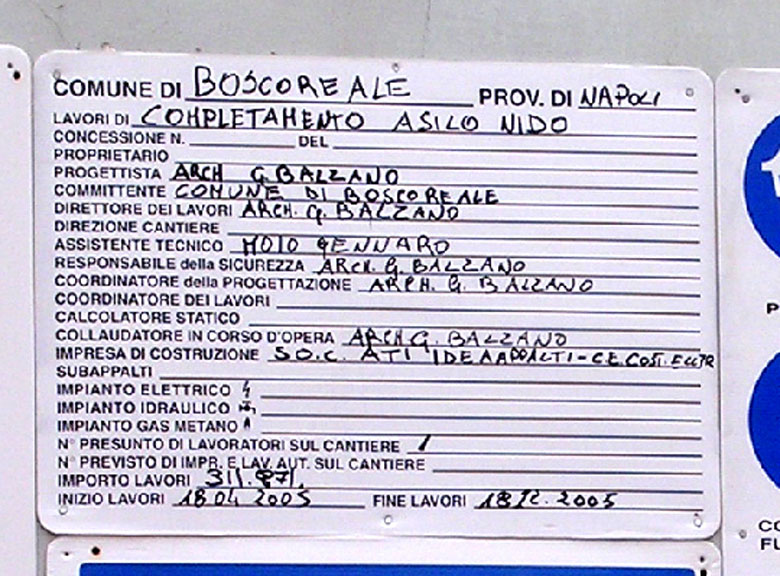 COMUNE DI BOSCOREALE PROV. DI NAPOLI
LAVORI DI COMPLETAMENTO ASILO NIDO
CONCESSIONE N. DEL
PROPRIETARIO
PROGETTISTA ARCH G BALZANO
COMMITTENTE COMUNE DI BOSCOREALE
DIRETTORE DEI LAVORI ARCH. G. BALZANO
DIREZIONE CANTIERE
ASSISTENTE TECNICO MOIO GENNARO
RESPONSABILE della SICUREZZA ARCH. G. BALZANO
COORDINATORE della PROGETTAZIONE ARCH. G. BALZANO
COORDINATORE DEI LAVORI
CALCOLATORE STATICO
COLLAUDATORE IN CORSO D'OPERA ARCH G. BALZANO
IMPRESA DI COSTRUZIONE S.O.C. ATI IDEAAPPALTI - C.E. COST.
SUBAPPALTI
IMPIANTO ELETTRICO
IMPIANTO IDRAULICO
IMPIANTO GAS METANO
N° PRESUNTO DI LAVORATORI SUL CANTIERE /
N° PREVISTO DI IMPR. E LAV. AUT. SUL CANTIERE
IMPORTO LAVORI 311.871.
INIZIO LAVORI 18 04 2005 FINE LAVORI 18.12.2005